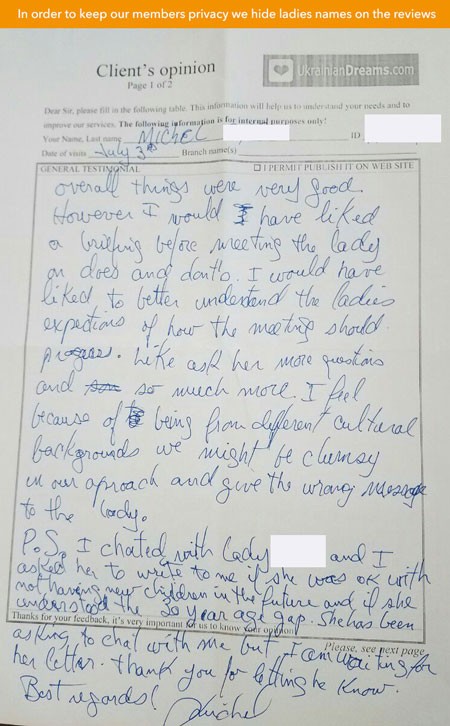 In order to keep our members privacy we hide ladies names on the reviews
Client's opinion
Page 1 of 2
UkrainianDreams.com
Dear Sir, please fill in the following table. This information will help us to understand your needs and to
improve our services. The following information is for internal purposes only!
Your Name, Last name Michel ID
Date of visits July 3rd Branch name(s)
GENERAL TESTIMONIAL ☐ I PERMIT PUBLISH IT ON WEB SITE
overall things were very good.
However I would have liked
a briefing before meeting the lady
on does and dont's. I would have
liked to better understend the ladies
expections of how the meeting should
progress. Like ask her more questions
and so much more. I feel
because of being from different cultural
backgrounds we might be clumsy
in our aproach and give the wrong message
to the lady.
P.S. I chated with Lady and I
asked her to write to me if she was ok with
not having new children in the future and if she
understood the 30 year age gap. She has been
Thanks for your feedback, it's very important for us to know your opinion
asking to chat with me but I am waiting for
Please, see next page
her letter. Thank you for letting me know.
Best regards!
Michel